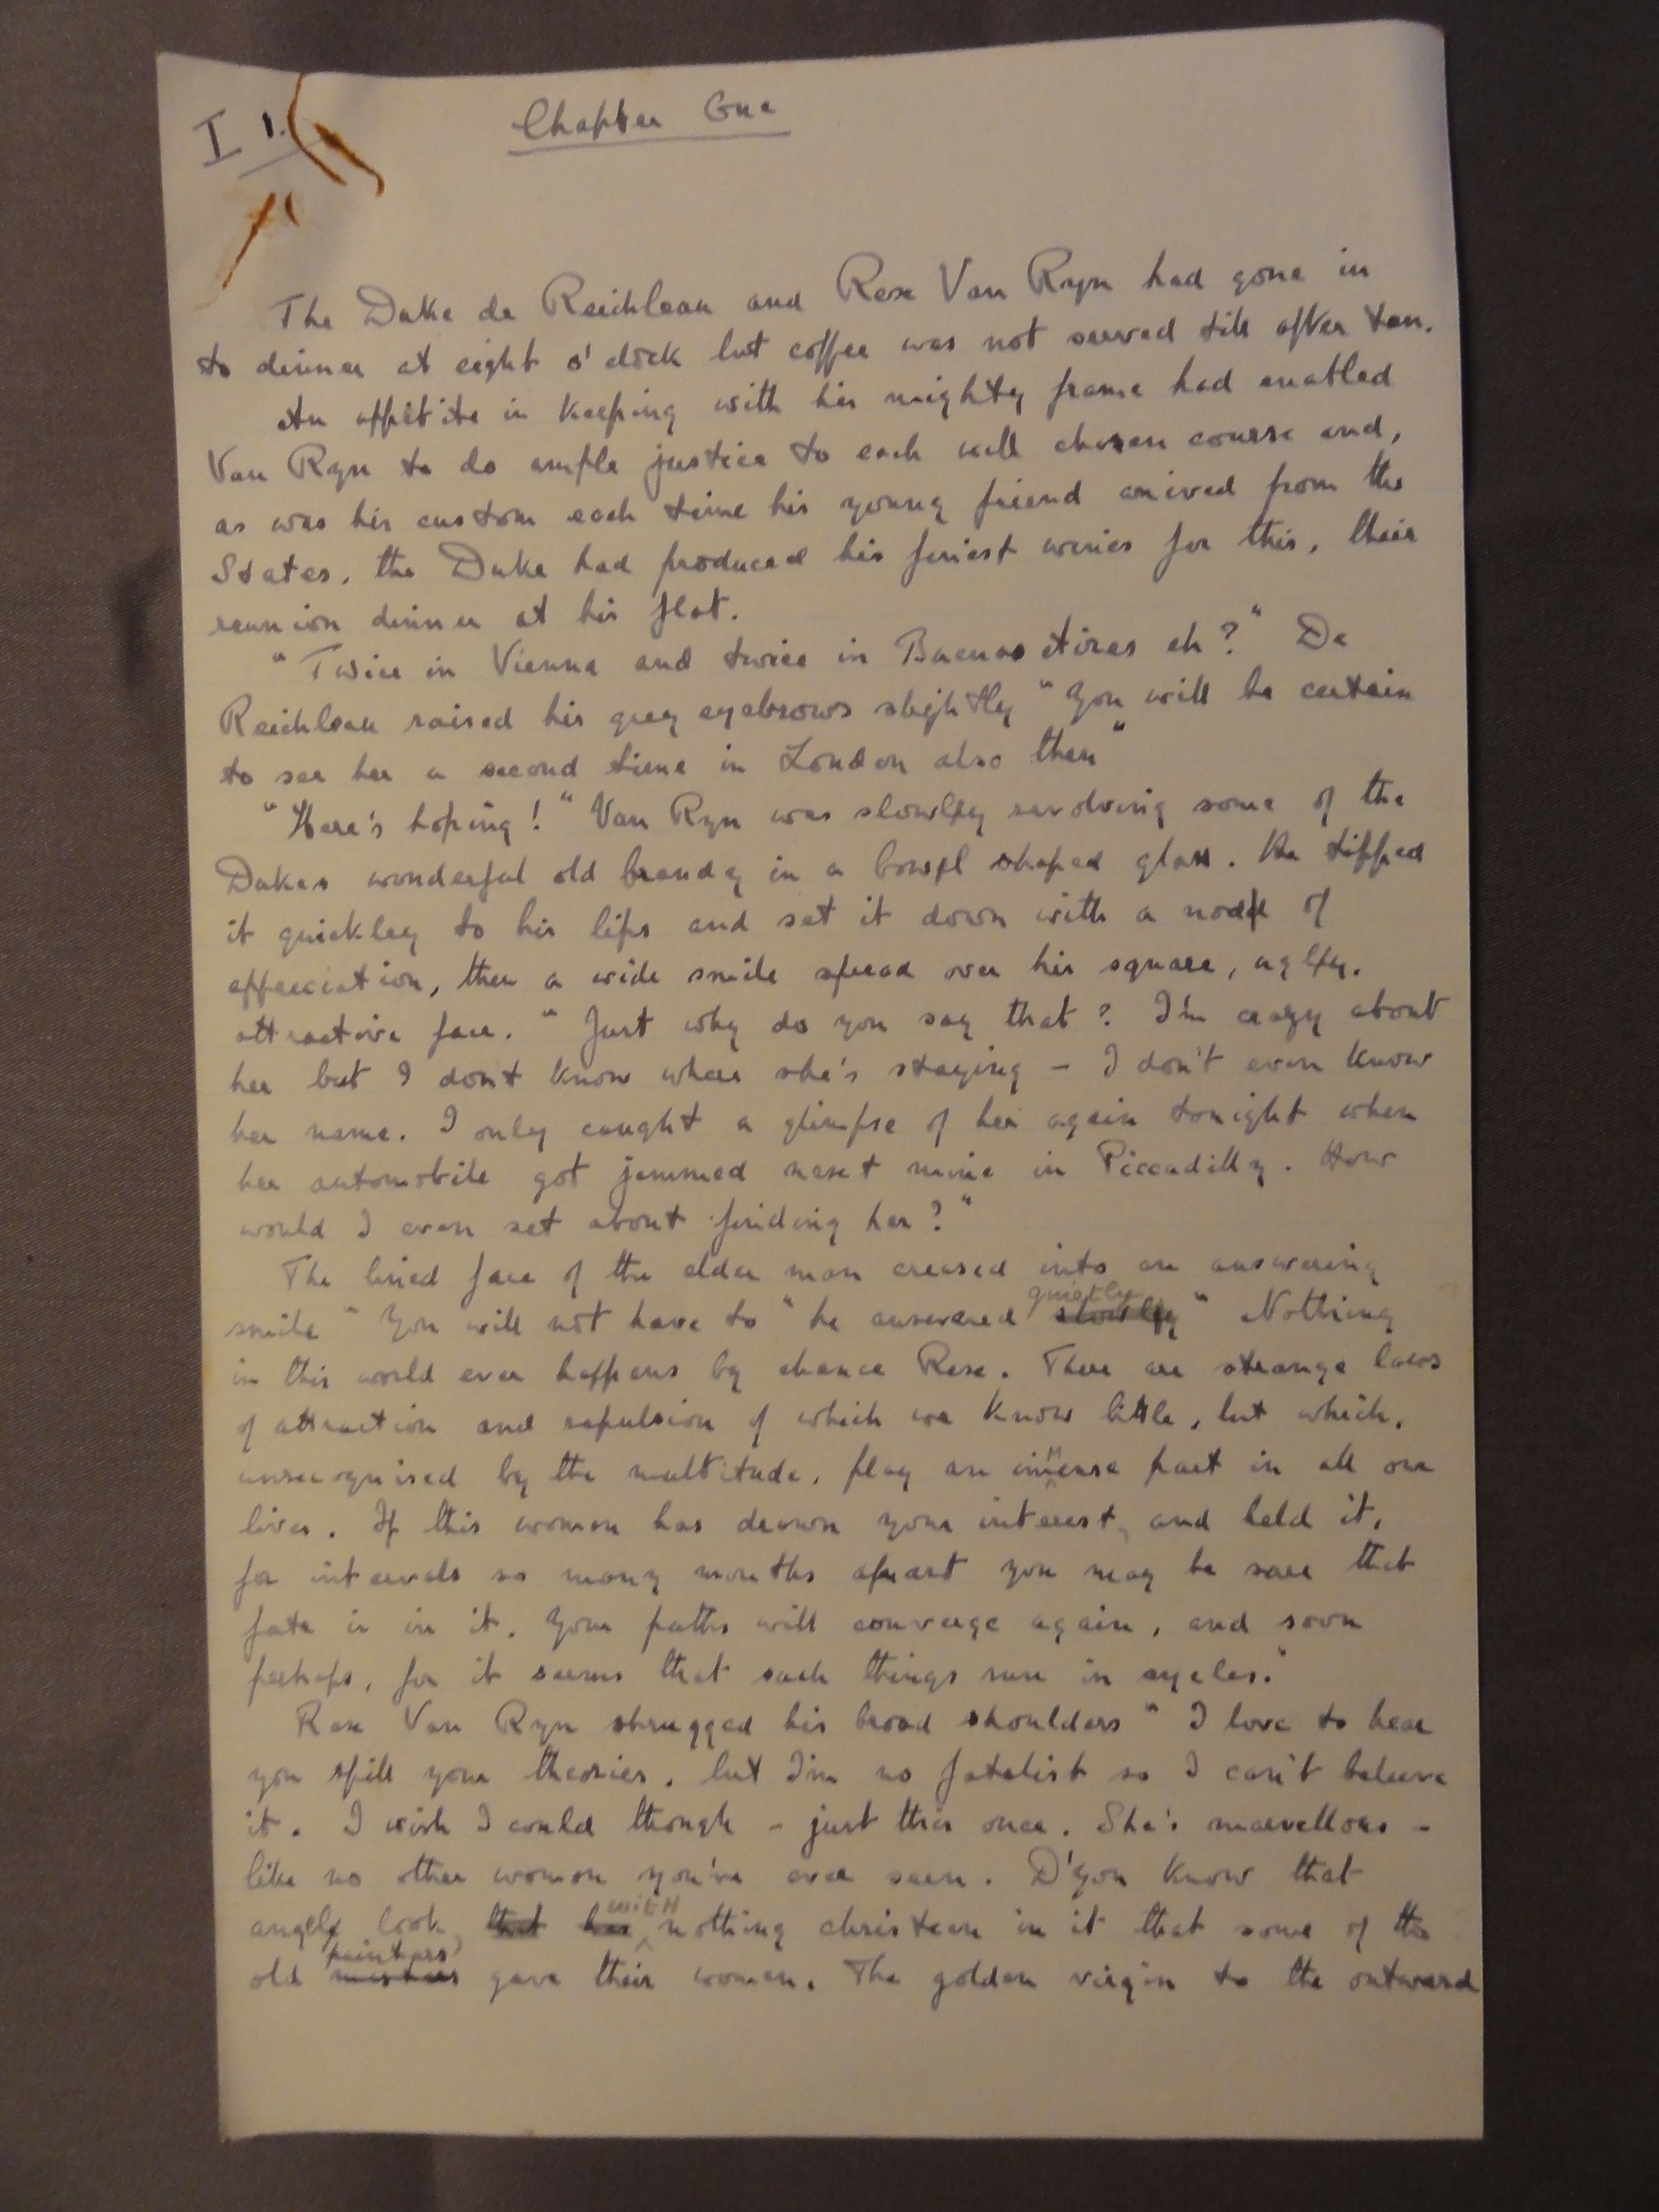 I 1.
Chapter One
The Duke de Reichleau and Rex Van Ryn had gone in
to dinner at eight o'clock but coffee was not served till after ten.
An appitite in keeping with his mighty frame had enabled
Van Ryn to do ample justice to each well chosen course and,
as was his custom each time his young friend arrived from the
States, the Duke had produced his finest wines for this, their
reunion dinner at his flat.
"Twice in Vienna and twice in Buenos Aires eh?" De
Reichleau raised his grey eyebrows slightly "You will be certain
to see her a second time in London also then"
"Here's hoping!" Van Ryn was slowley revolving some of the
Dukes wonderful old brandy in a bowl shaped glass. He tipped
it quickley to his lips and set it down with a nod of
appreciation, then a wide smile spread over his square, ugly,
attractive face. "Just why do you say that? I'm crazy about
her but I dont know where she's staying - I don't even know
her name. I only caught a glimpse of her again tonight when
her automobile got jammed next mine in Piccadilly. How
would I even set about finding her?"
The lined face of the elder man creased into an answering
smile "You will not have to" he answered quietly slowley "Nothing
in this world ever happens by chance Rex. There are strange laws
of attraction and repulsion of which we know little, but which,
unrecognised by the multitude, play an immense part in all our
lives. If this woman has drawn your interest, and held it,
for intervals so many months apart you may be sure that
fate is in it. Your paths will converge again, and soon
perhaps, for it seems that such things run in cycles."
Rex Van Ryn shrugged his broad shoulders "I love to hear
you spill your theories, but I'm no fatalist so I can't beleeve
it. I wish I could though - just this once. She's marvellous -
like no other woman you've ever seen. D'you know that
angely look, that has with nothing christean in it that some of the
old masters painters gave their women. The golden virgin to the outward